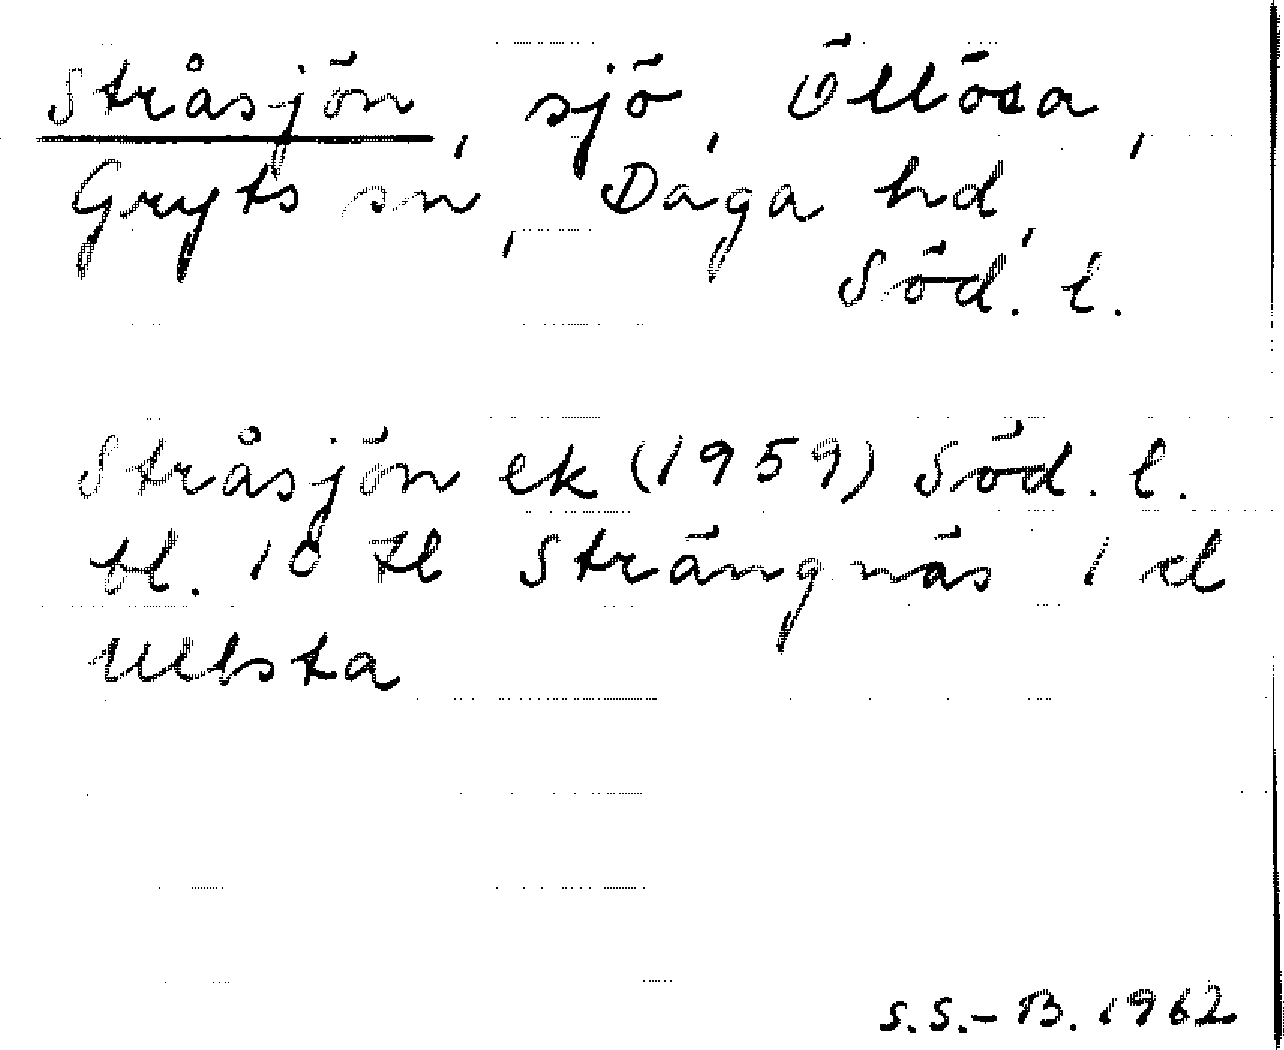 Stråsjön, sjö, Öllösa,
Gryts sn, Daga hd,
Söd. l.
Stråsjön ek (1959) Söd. l.
bl. 10 tl Strängnäs 1 d
Ullsta
S.S.-B. 1962